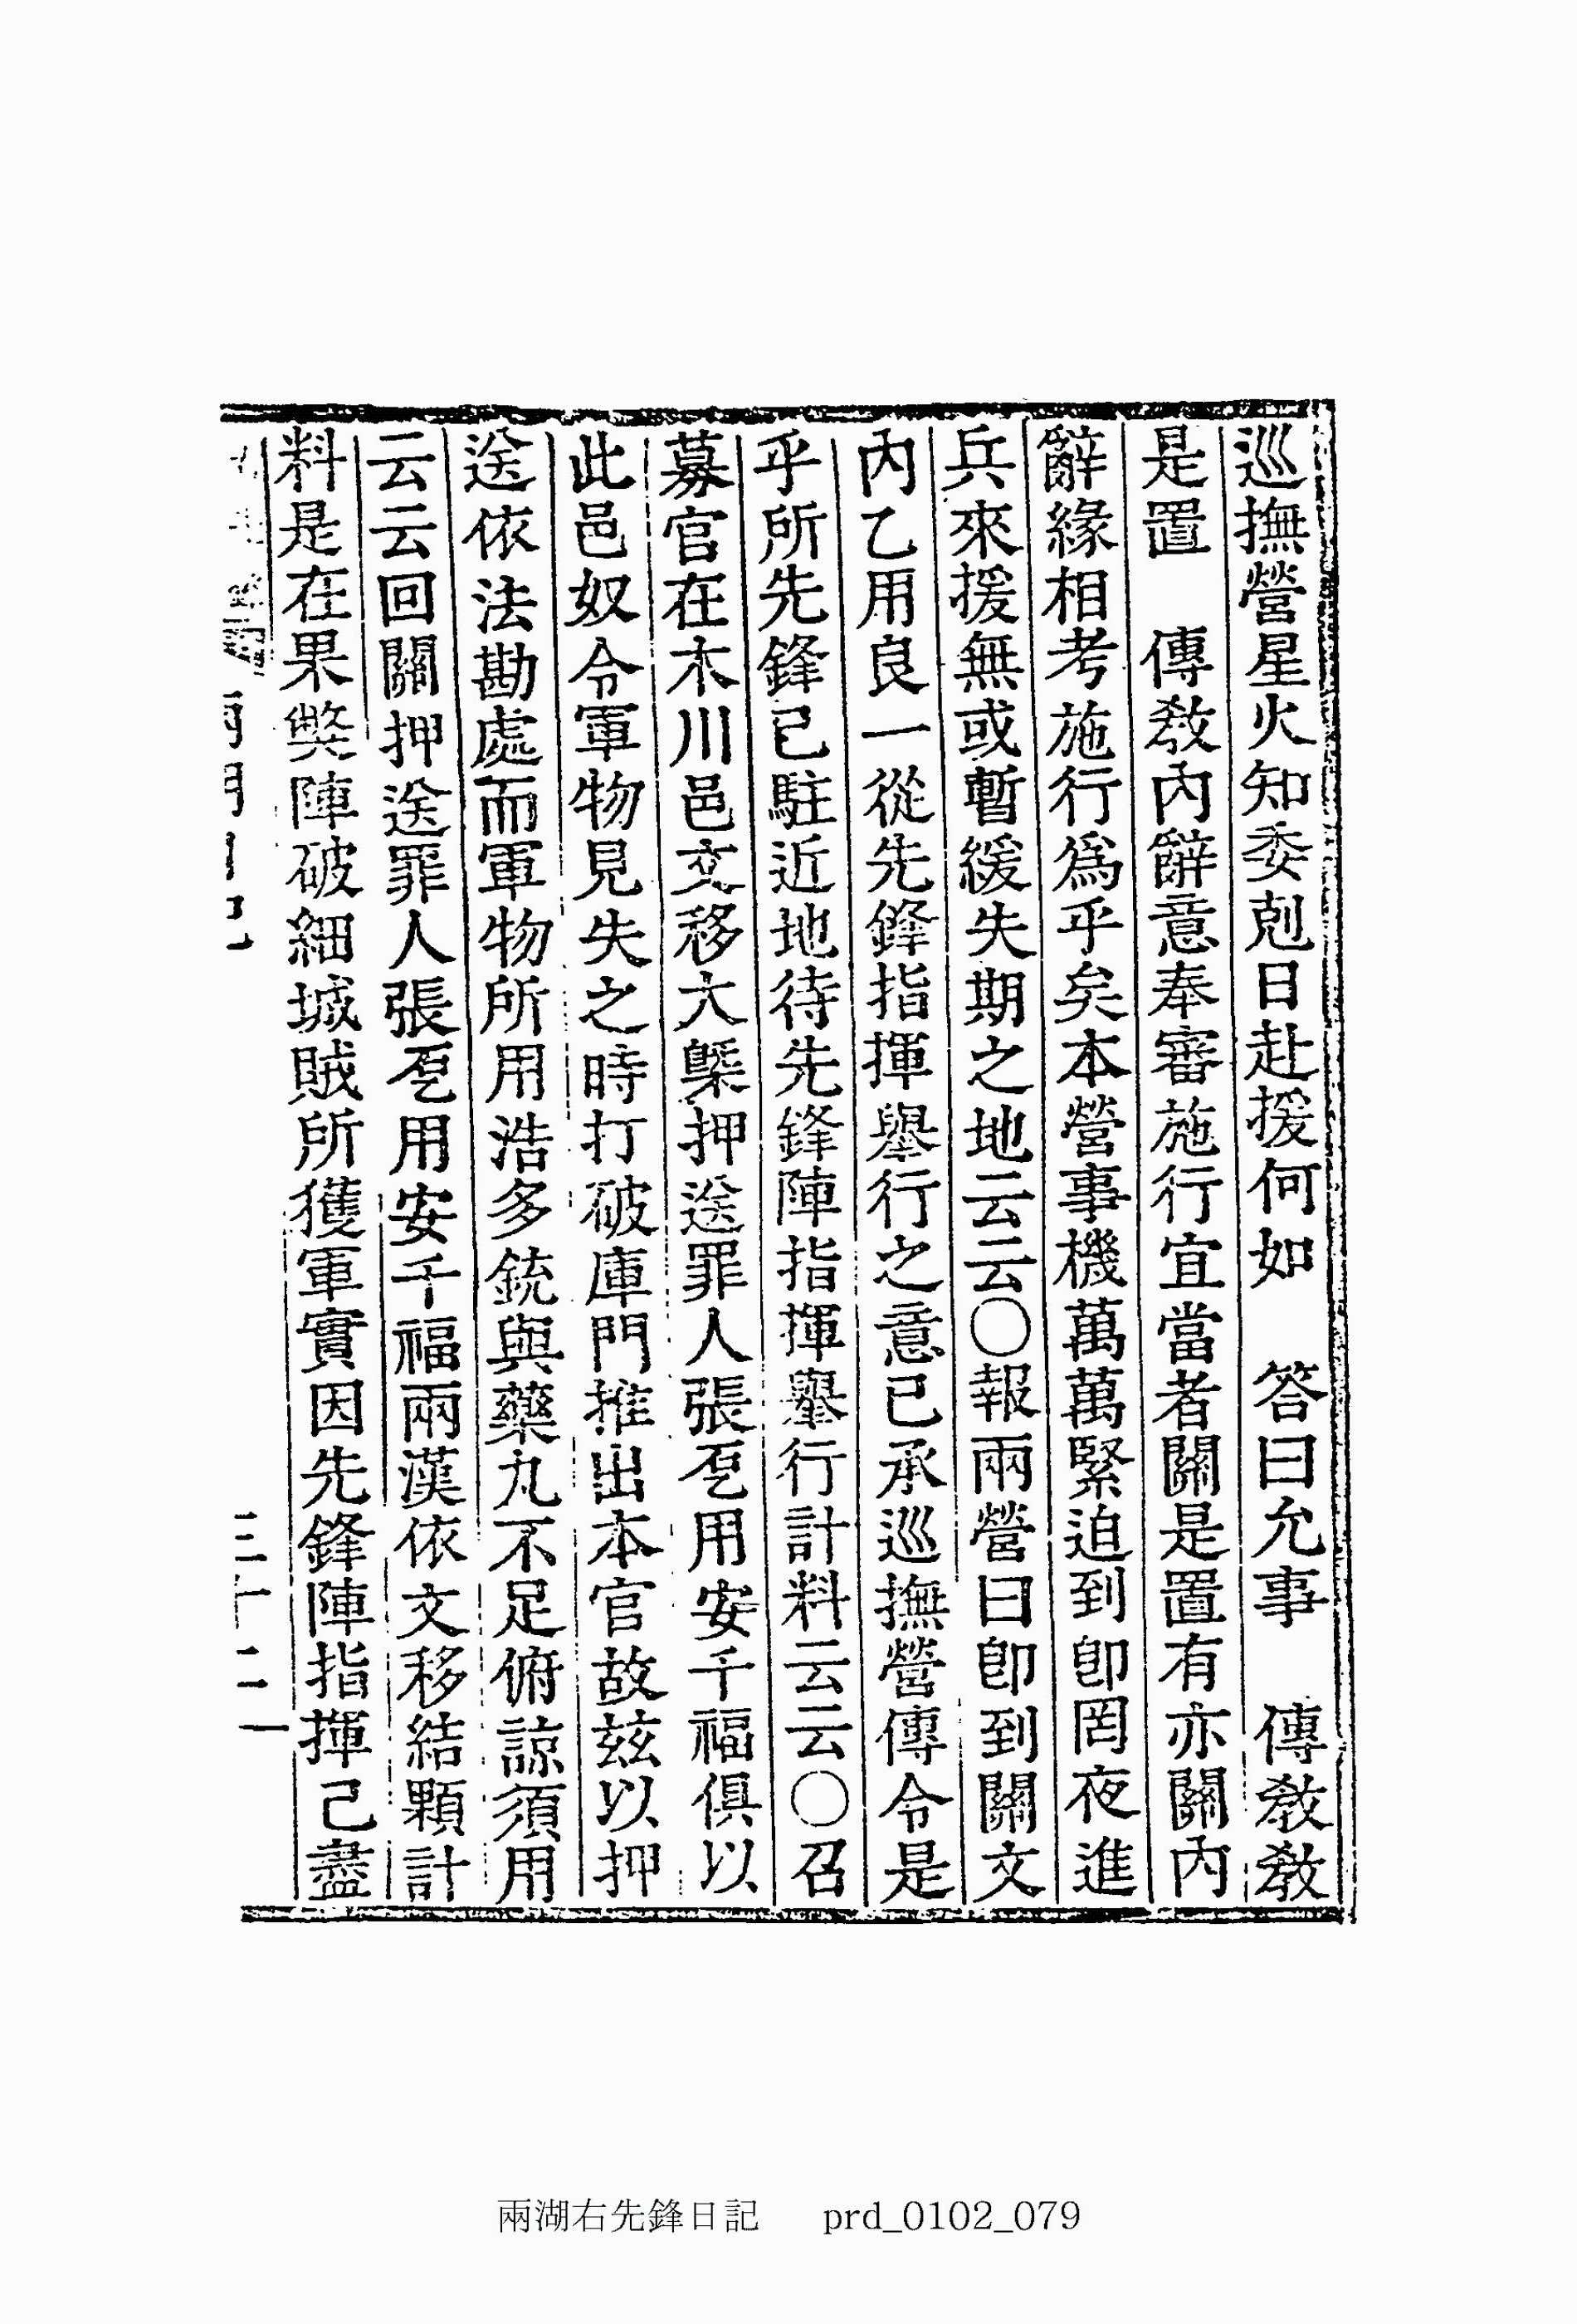 巡撫營星火知委剋日赴援何如　答曰允事　傳敎敎
是置　傳敎內辭意奉審施行宜當者關是置有亦關內
辭緣相考施行爲乎矣本營事機萬萬緊迫到卽罔夜進
兵來援無或暫緩失期之地云云○報兩營曰卽到關文
內乙用良一從先鋒指揮擧行之意已承巡撫營傳令是
乎所先鋒已駐近地待先鋒陣指揮擧行計料云云○召
募官在木川邑文移大槩押送罪人張㐗用安千福俱以
此邑奴令軍物見失之時打破庫門推出本官故玆以押
送依法勘處而軍物所用浩多銃與藥丸不足俯諒須用
云云回關押送罪人張㐗用安千福兩漢依文移結顆計
料是在果獘陣破細城賊所獲軍實因先鋒陣指揮己盡
三十二
兩湖右先鋒日記 prd_0102_079